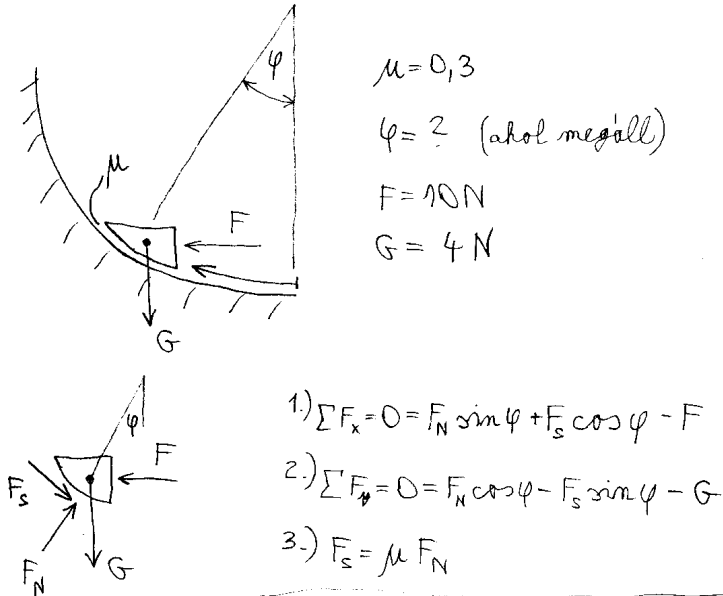 φ
μ
F
G
μ = 0,3
φ = ? (ahol megáll)
F = 10 N
G = 4 N
φ
F
F_S
F_N
G
1.) ΣF_x = 0 = F_N sin φ + F_S cos φ - F
2.) ΣF_y = 0 = F_N cos φ - F_S sin φ - G
3.) F_S = μ F_N